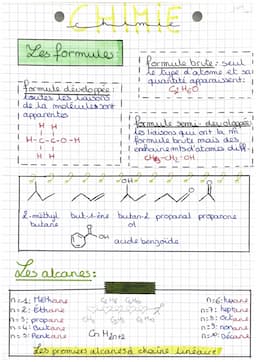 CHIMIE
chimie
Les formules
formule brute: seul
le type d'atome et sa
quantité apparaissent:
C₂H₆O
formule développée:
toutes les liaisons
de la molécule sont
apparentes
H H
H-C-C-O-H
H H
formule semi-développée:
les liaisons qui ont la m
formule brute mais des
enchainements d'atomes diff.
CH₃-CH₂-OH
OH
O
2-méthyl
butane
but-1-ène
butan-2
ol
propanal
propanone
OH
acide benzoïde
Les alcanes:
n=1: Méthane
n=2: Ethane
n=3: propane
n=4: Butane
n=5: Pentane
CnH2n+2
n=6: hexane
n=7: heptane
n=8: Octane
n=9: nonane
n=10: Décane
Les premiers alcanes à chaîne linéaire